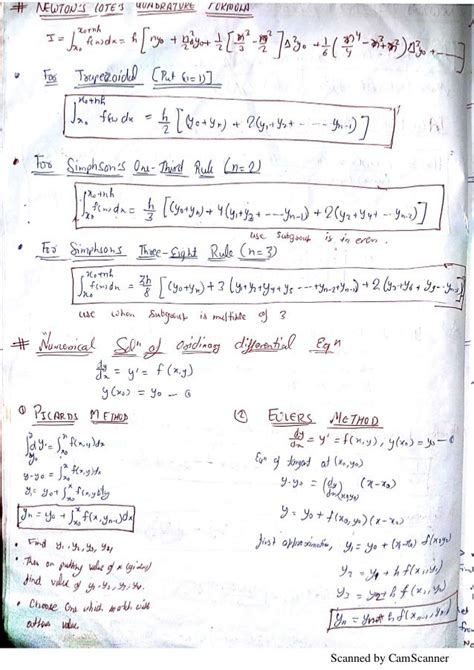 # NEWTON'S COTE'S QUADRATURE FORMULA
I = ∫_{x₀}^{x₀+nh} f(x)dx = h [ny₀ + n²/2 Δy₀ + 1/2 [n³/3 - n²/2] Δ²y₀ + 1/6 (n⁴/4 - n³ + n²) Δ³y₀ + ---]
• For Trapezoidal [Put n=1]
∫_{x₀}^{x₀+nh} f(x)dx = h/2 [(y₀+yₙ) + 2(y₁+y₂+ ---- yₙ₋₁)]
• For Simphson's One-Third Rule (n=2)
∫_{x₀}^{x₀+nh} f(x)dx = h/3 [(y₀+yₙ) + 4(y₁+y₃+----yₙ₋₁) + 2(y₂+y₄+--- yₙ₋₂)]
use is in even.
• For Simphsons Three-Eight Rule (n=3)
∫_{x₀}^{x₀+nh} f(x)dx = 3h/8 [(y₀+yₙ) + 3(y₁+y₂+y₄+y₅ ---+yₙ₋₂+yₙ₋₁) + 2(y₃+y₆+
use when is multiple of 3
# Numerical Solⁿ of ordinary differential Eqⁿ
dy/dx = y' = f(x,y)
y(x₀) = y₀
① PICARDS METHOD
∫dy = ∫_{x₀}^{x} f(x,y)dx
y-y₀ = ∫_{x₀}^{x} f(x,y)dx
y₁ = y₀ + ∫_{x₀}^{x} f(x,y₀)dx
yₙ = y₀ + ∫_{x₀}^{x} f(x,yₙ₋₁)dx
• Find y₁, y₂, y₃, y₄
• Then on putting value of x (given)
find value of y₁, y₂, y₃, y₄
• Choose One which match with
other value.
② EULERS METHOD
dy/dx = y' = f(x,y), y(x₀) = y₀
Eqⁿ of tangent at (x₀,y₀)
y-y₀ = (dy/dx)(x₀,y₀) (x-x₀)
y = y₀ + f(x₀,y₀)(x-x₀)
first approximation, y₁ = y₀ + (x₁-x₀) f(x₀,y₀)
y₂ = y₁ + h f(x₁,y₁)
yₙ = yₙ₋₁ + h f(xₙ₋₁, yₙ₋₁)
Scanned by CamScanner